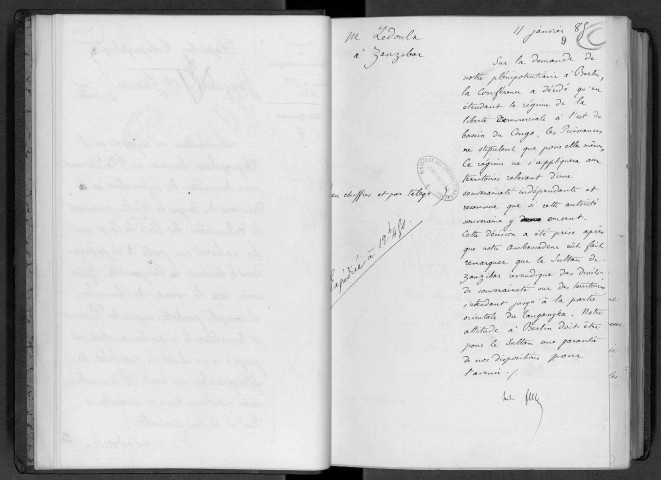 M Ledoulx
à Zanzibar
11 janvier 85
9
Sur la demande de
notre plénipotentiaire à Berlin,
la Conférence a décidé qu'en
étendant le régime de la
liberté commerciale à l'est du
bassin du Congo, les Puissances
ne stipulent que pour elles mêmes.
Ce régime ne s'appliquera aux
territoires relevant d'une
souveraineté indépendante et
reconnue que si cette autorité
souveraine y consent.
Cette décision a été prise après
que notre ambassadeur eût fait
remarquer que le Sultan de
Zanzibar revendique des droits
de souveraineté sur des territoires
s'étendant jusqu'à la partie
orientale du Tanganyka. Notre
attitude à Berlin doit être
pour le Sultan une garantie
de nos dispositions pour
l'avenir./.
en chiffres et par télégr
Expédiée à